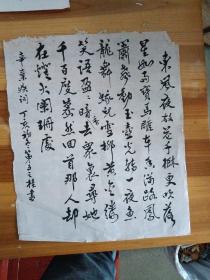 東風夜放花千樹更吹落
星如雨寶馬雕車香滿路鳳
簫聲動玉壺光轉一夜魚
龍舞蛾兒雪柳黃金縷
笑語盈暗香去衆裏尋他
千百度驀然回首那人却
在燈火闌珊處
辛棄疾詞